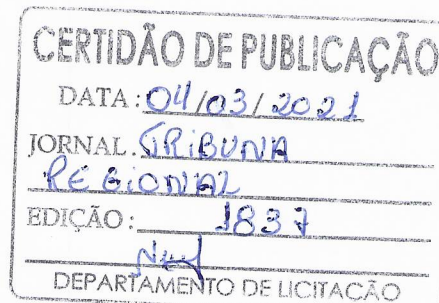 CERTIDÃO DE PUBLICAÇÃO
DATA: 04/03/2021
JORNAL. TRIBUNA
REGIONAL
EDIÇÃO: 1837
DEPARTAMENTO DE LICITAÇÃO